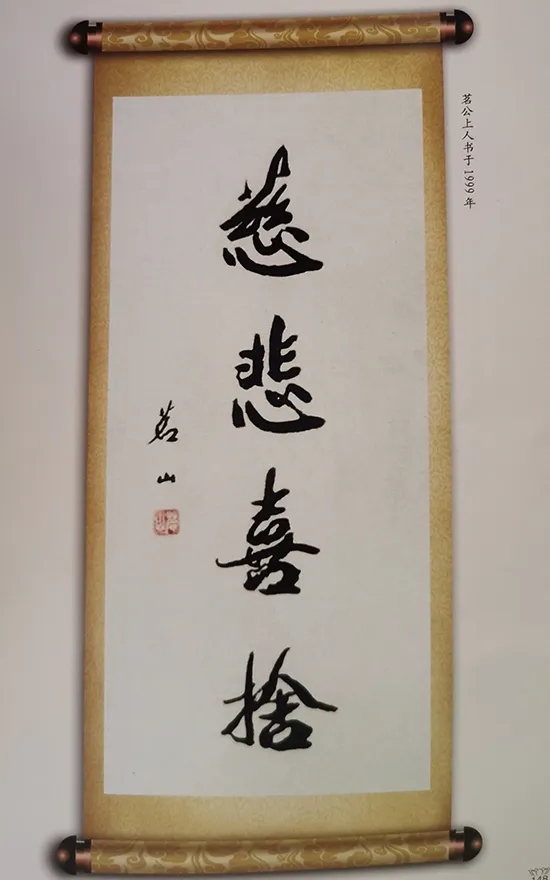 茗公上人书于1999年
慈悲喜捨
茗山